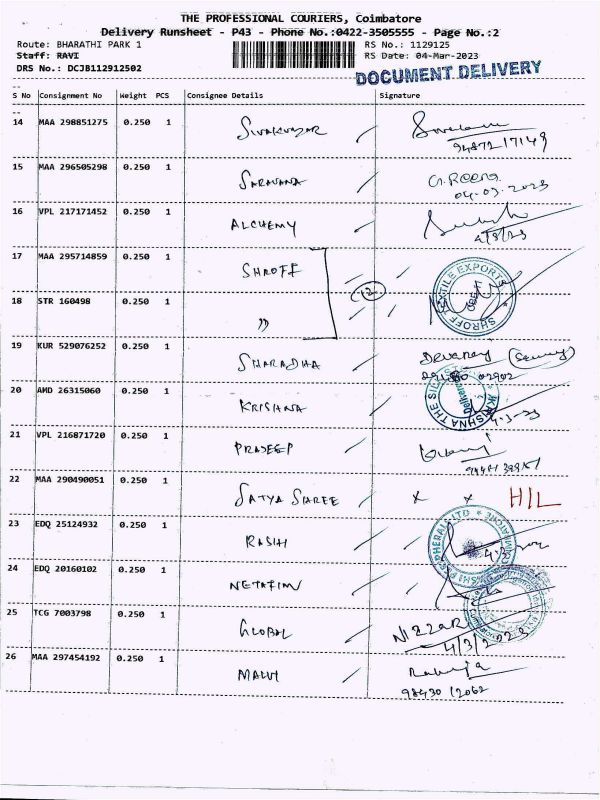 THE PROFESSIONAL COURIERS, Coimbatore
Delivery Runsheet - P43 - Phone No.:0422-3505555 - Page No.:2
Route: BHARATHI PARK 1 RS No.: 1129125
Staff: RAVI RS Date: 04-Mar-2023
DRS No.: DCJB112912502
DOCUMENT DELIVERY
S No Consignment No Weight PCS Consignee Details Signature
14 MAA 298851275 0.250 1 SIVAKUMAR
94872 17149
15 MAA 296505298 0.250 1 SARAVANA G. Reena
04.03.2023
16 VPL 217171452 0.250 1 ALCHEMY
4/3/23
17 MAA 295714859 0.250 1 SHROFF
(2)
SHROFF TEXTILE EXPORTS
18 STR 160498 0.250 1 "
19 KUR 529076252 0.250 1 SHARADHA Devaraj
20 AMD 26315060 0.250 1 KRISHNA
KRISHNA THE
4-3-23
21 VPL 216871720 0.250 1 PRADEEP
22 MAA 290490051 0.250 1 SATYA SHREE x x H/L
23 EDQ 25124932 0.250 1 RASHI
RASHI PERIPHERALS LTD
24 EDQ 20160102 0.250 1 NETAFIM
25 TCG 7003798 0.250 1 GLOBAL NIZZAR
4/3/2023
26 MAA 297454192 0.250 1 MALVI
98430 12062